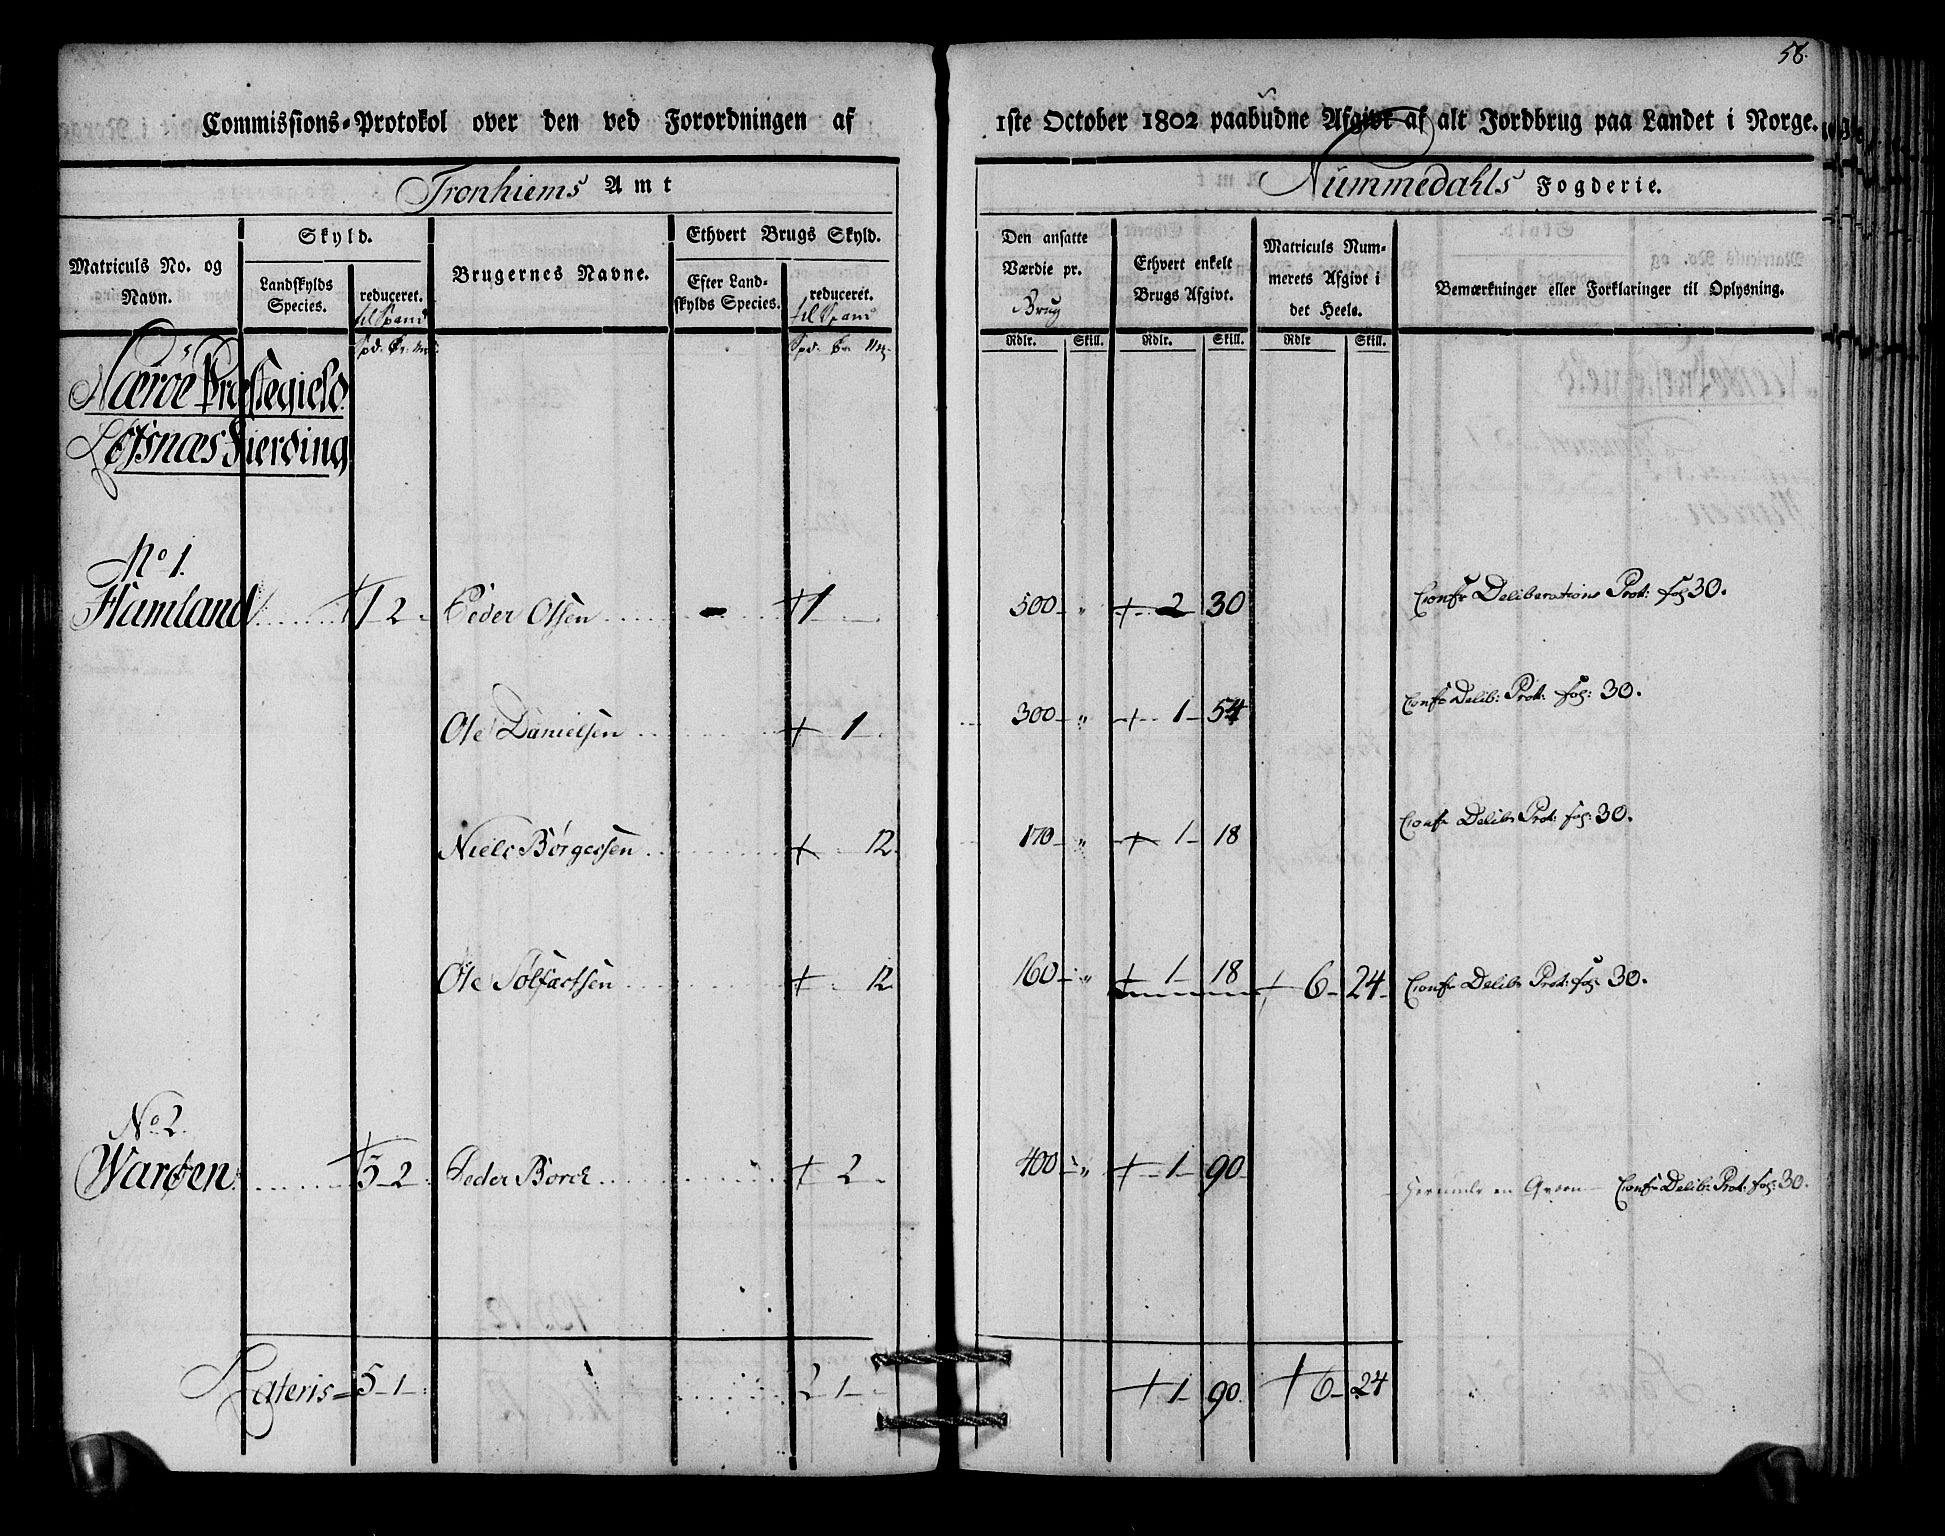 58.
Commissions-Protokol over den ved Forordningen af 1ste October 1802 paabudne Afgivt af alt Jordbrug paa Landet i Norge.
Tronhiems Amt
Nummedahls Fogderie.
Matriculs No. og Navn.
Skyld.
Landskylds Species.
reduceret.
til Spand
Brugernes Navne.
Ethvert Brugs Skyld.
Efter Landskylds Species.
reduceret.
til Spand
Den ansatte Værdie pr.
Brug
Ethvert enkelt Brugs Afgivt.
Matriculs Nummerets Afgivt i det Heele.
Bemærkninger eller Forklaringer til Oplysning.
Spd. Ør. Mrk.
Spd. Ør. Mrk.
Rdlr. Skill. Rdlr. Skill. Rdlr Skill.
Nærøe Præstegield.
Løfsnæs Fierding
No 1.
Flamland 1 2 Peder Olsen 1 500 " 2 30 Confr Deliberations Prot: fol 30.
Ole Danielsen 1 300 " 1 54 Confr Delib: Prot: fol: 30.
Niels Børgessen 12 170 " 1 18 Confr Delib: Prot: fol: 30.
Ole Tolfartsen 12 160 " 1 18 6 24 Confr Delib: Prot: fol: 30.
No 2.
Warøen 3 2 Peder Borch 2 400 " 1 90 en Qvern Confr Delib: Prot: fol: 30.
Lateris 5 1 2 1 1 90 6 24